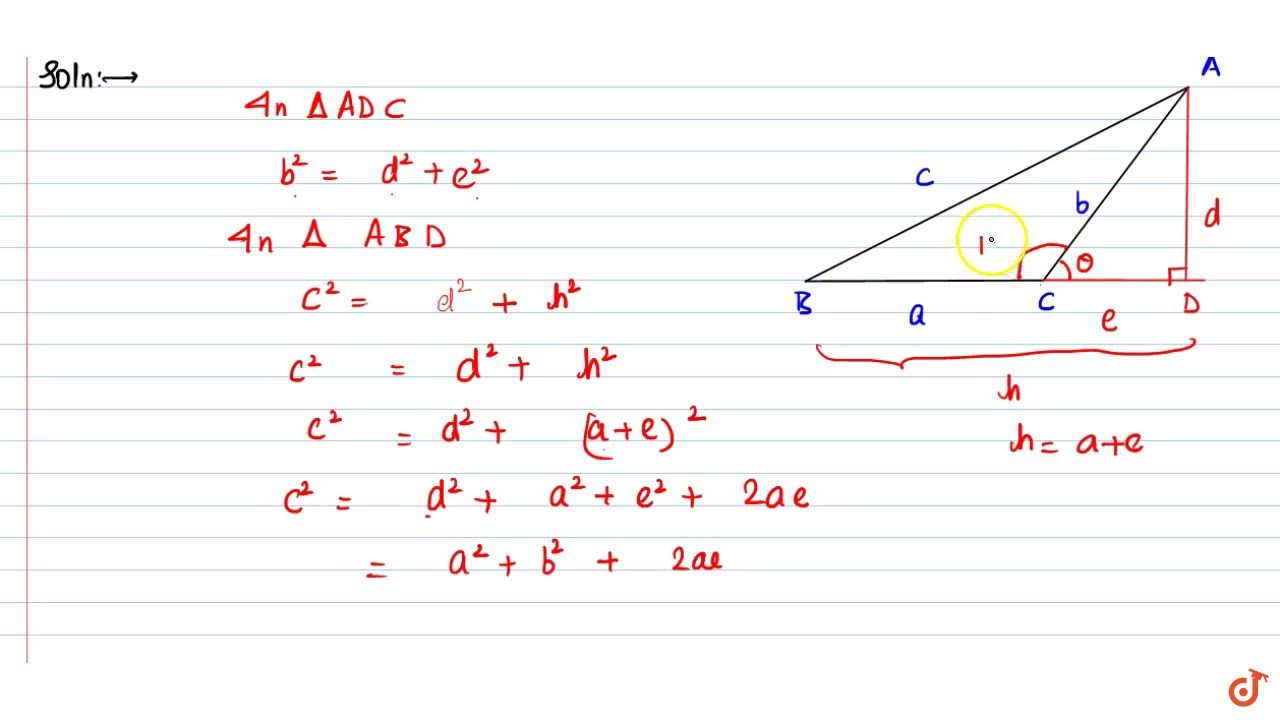 Soln:→
In Δ ADC
b² = d² + e²
In Δ ABD
c² = d² + h²
c² = d² + h²
c² = d² + (a+e)²
c² = d² + a² + e² + 2ae
= a² + b² + 2ae
A
c
b
d
1
θ
B
C
D
a
e
h
h = a+e